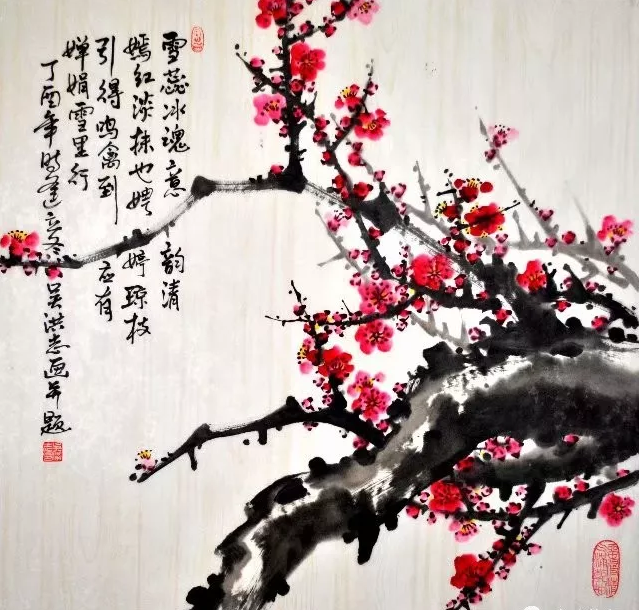 雪蕊冰魂意韵清
嫣红淡抹也娉婷琼枝
引得鸣禽到应有
婵娟雪里行
丁酉年时逢立冬吴洪志画并题